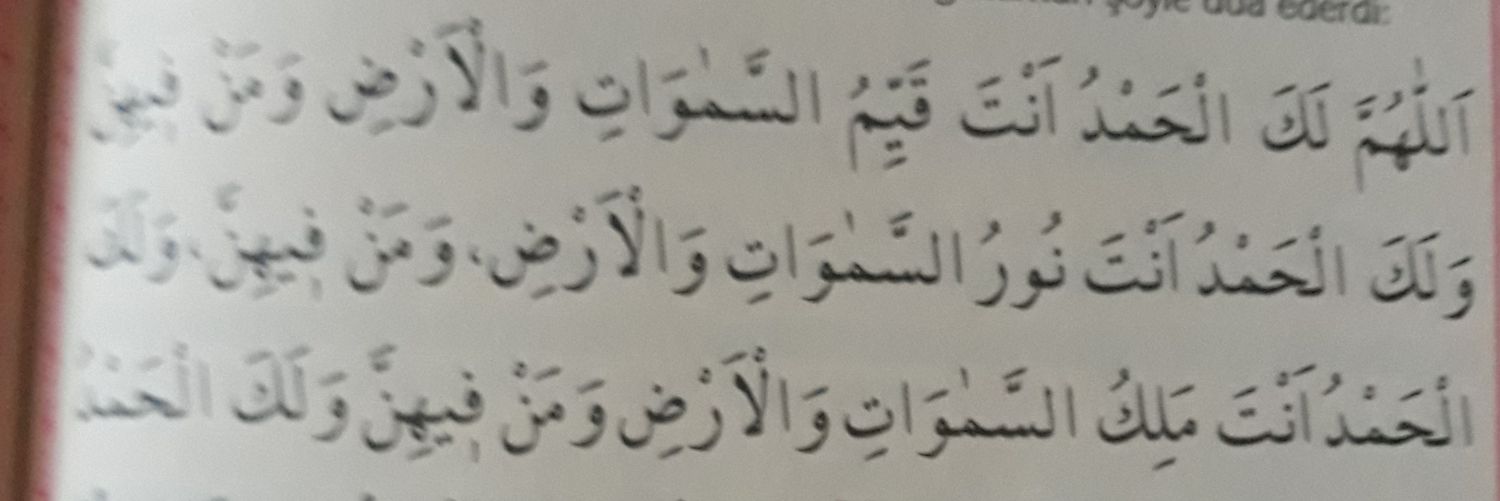 şöyle dua ederdi:
اَللّٰهُمَّ لَكَ الْحَمْدُ اَنْتَ قَيِّمُ السَّمٰوَاتِ وَالْاَرْضِ وَمَنْ فِيهِنَّ
وَلَكَ الْحَمْدُ اَنْتَ نُورُ السَّمٰوَاتِ وَالْاَرْضِ، وَمَنْ فِيهِنَّ، وَلَكَ
الْحَمْدُ اَنْتَ مَلِكُ السَّمٰوَاتِ وَالْاَرْضِ وَمَنْ فِيهِنَّ وَلَكَ الْحَمْدُ